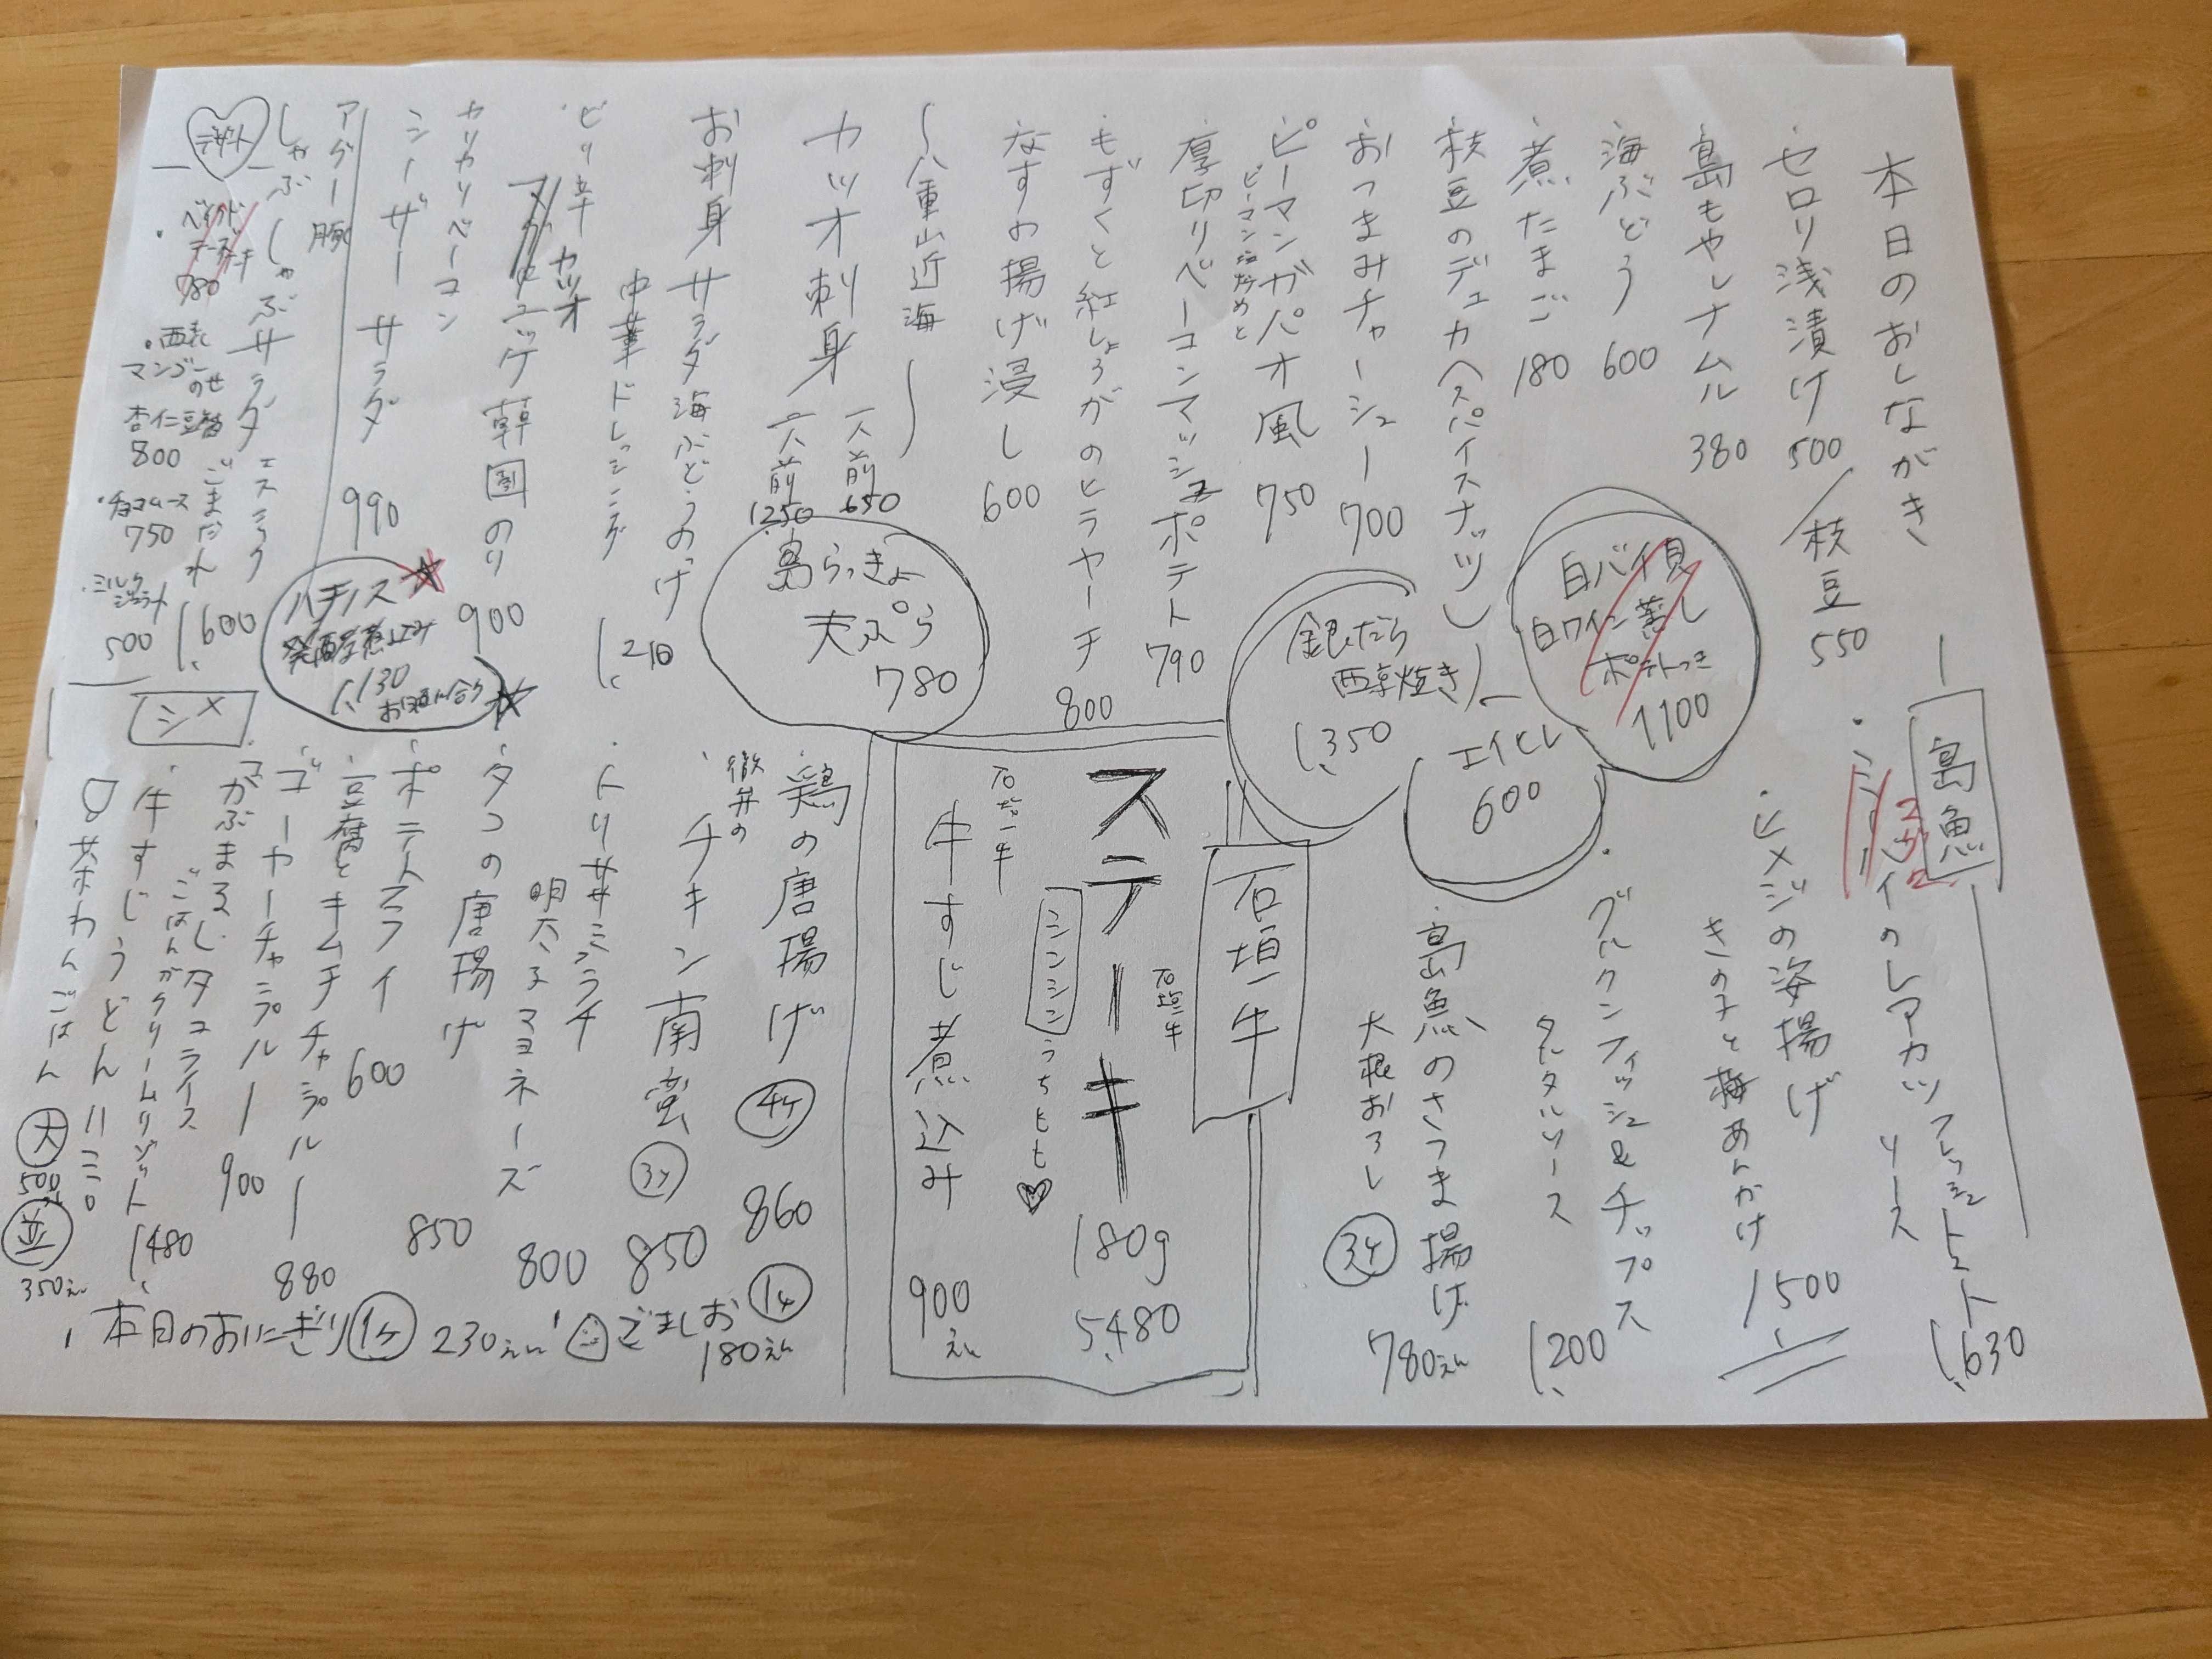 本日のおしながき
・セロリ浅漬け 500 / 枝豆 550
・島もやしナムル 380
・海ぶどう 600
・煮たまご 180
・枝豆のデュカ(スパイスナッツ)
・おつまみチャーシュー 700
・ピーマンガパオ風 750
ピーマン
・厚切りベーコンマッシュポテト 790
・もずくと紅しょうがのヒラヤーチ 800
・なすの揚げ浸し 600
〜八重山近海〜
カツオ刺身 一人前 650
二人前 1250
お刺身サラダ海ぶどうのっけ
中華ドレッシング 1,210
・ピリ辛カツオ
ユッケ韓国のり 900
カリカリベーコン
シーザーサラダ 990
アグー豚
しゃぶしゃぶサラダ
ごまだれ 1,600
デザート
ベイクド
チーズケーキ
780
・西表
マンゴー
のせ
杏仁豆腐
800
・チョコムース
750
・ミルク
ジェラート
500
白バイ貝
白ワイン蒸し
ポテトつき
1100
銀だら
西京焼き
1,350
エイヒレ
600
島らっきょ
天ぷら
780
ハチノス
1,130
島魚
のレアカツフレッシュトマト
ソース 1,630
・ヒメジの姿揚げ
きのこと梅あんかけ 1500
・グルクンフィッシュ&チップス
タルタルソース 1,200
・島魚のさつま揚げ
大根おろし 3ケ 780えん
石垣牛
ステーキ 180g 5,480
石垣牛
シンシン うちもも♡
石垣牛
牛すじ煮込み 900えん
・鶏の唐揚げ 4ケ 860 1ケ 180えん
・チキン南蛮 3ケ 850
・トリササミフライ
明太子マヨネーズ 800
・タコの唐揚げ 850
・ポテトフライ 600
・豆腐とキムチチャンプルー 880
・ゴーヤーチャンプルー 900
シメ
・がぶまるしタコライス
ごはんがクリームリゾット 1,480
・牛すじうどん
茶わんごはん 大 500 並 350えん
・本日のおにぎり 1ケ 230えん ごましお